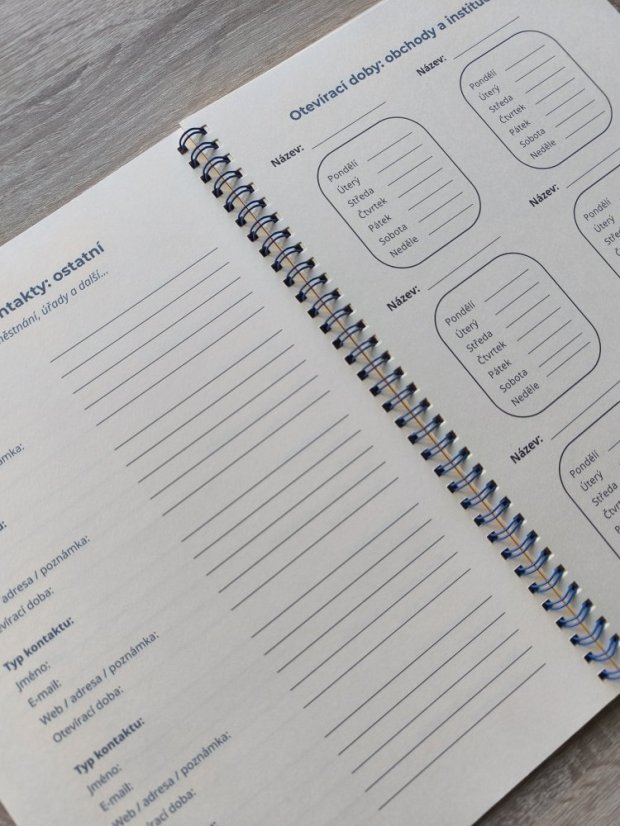 ntakty: ostatní
městnání, úřady a další...
ámka:
adresa / poznámka:
vírací doba:
Typ kontaktu:
Jméno:
E-mail:
Web / adresa / poznámka:
Otevírací doba:
Typ kontaktu:
Jméno:
E-mail:
Web / adresa / poznámka:
doba:
Otevírací doby: obchody a institu
Název:
Pondělí
Úterý
Středa
Čtvrtek
Pátek
Sobota
Neděle
Název:
Pondělí
Úterý
Středa
Čtvrtek
Pátek
Sobota
Neděle
Název:
Pondělí
Úterý
Středa
Čtvrtek
Pátek
Sobota
Neděle
Název:
Pondělí
Úterý
Středa
Čtvrt
Pátek
Název:
Pondělí
Úterý
Středa